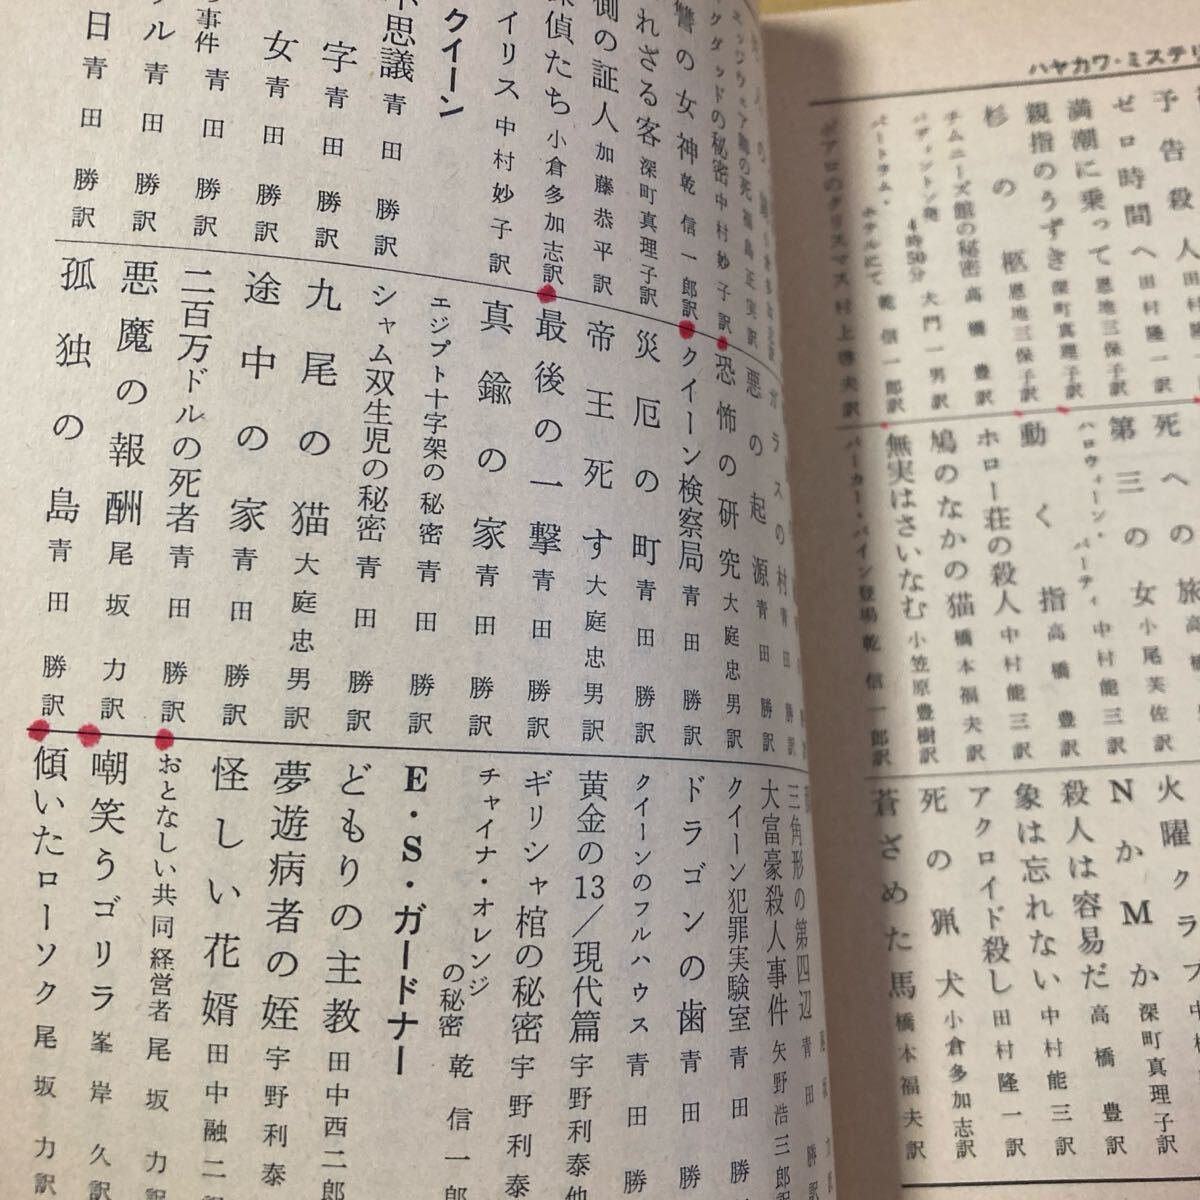 ハヤカワ・ミステリ
予告殺人 田村隆一訳
ゼロ時間へ 田村隆一訳
満潮に乗って 恩地三保子訳
親指のうずき 深町真理子訳
杉の柩 恩地三保子訳
チムニーズ館の秘密 高橋豊訳
パディントン発4時50分 大門一男訳
バートラム・ホテルにて 乾信一郎訳
ポアロのクリスマス 村上啓夫訳
死への旅
第三の女 小尾芙佐訳
ハロウィーン・パーティ 中村能三訳
動く指 高橋豊訳
ホロー荘の殺人 中村能三訳
鳩のなかの猫 橋本福夫訳
無実はさいなむ 小笠原豊樹訳
パーカー・パイン登場 乾信一郎訳
火曜クラブ 中
NかMか 深町真理子訳
殺人は容易だ 高橋豊訳
象は忘れない 中村能三訳
アクロイド殺し 田村隆一訳
死の猟犬 小倉多加志訳
蒼ざめた馬 橋本福夫訳
の死 福島正実訳
グダッドの秘密 中村妙子訳
讐の女神 乾信一郎訳
れざる客 深町真理子訳
側の証人 加藤恭平訳
探偵たち 小倉多加志訳
イリス 中村妙子訳
クイーン
不思議 青田勝訳
字 青田勝訳
女 青田勝訳
事件 青田勝訳
ル 青田勝訳
日 青田勝訳
ガラスの村 青田勝訳
悪の起源 青田勝訳
恐怖の研究 大庭忠男訳
クイーン検察局 青田勝訳
災厄の町 青田勝訳
帝王死す 大庭忠男訳
最後の一撃 青田勝訳
真鍮の家 青田勝訳
エジプト十字架の秘密 青田勝訳
シャム双生児の秘密 青田勝訳
九尾の猫 大庭忠男訳
途中の家 青田勝訳
二百万ドルの死者 青田勝訳
悪魔の報酬 尾坂力訳
孤独の島 青田勝訳
三角形の第四辺 青田勝訳
大富豪殺人事件 矢野浩三郎訳
クイーン犯罪実験室 青田勝
ドラゴンの歯 青田勝
クイーンのフルハウス 青田勝
黄金の13/現代篇 宇野利泰他
ギリシャ棺の秘密 宇野利泰
チャイナ・オレンジの秘密 乾信一郎
E・S・ガードナー
どもりの主教 田中西二郎
夢遊病者の姪 宇野利泰
怪しい花婿 田中融二訳
おとなしい共同経営者 尾坂力訳
嘲笑うゴリラ 峯岸久訳
傾いたローソク 尾坂力訳